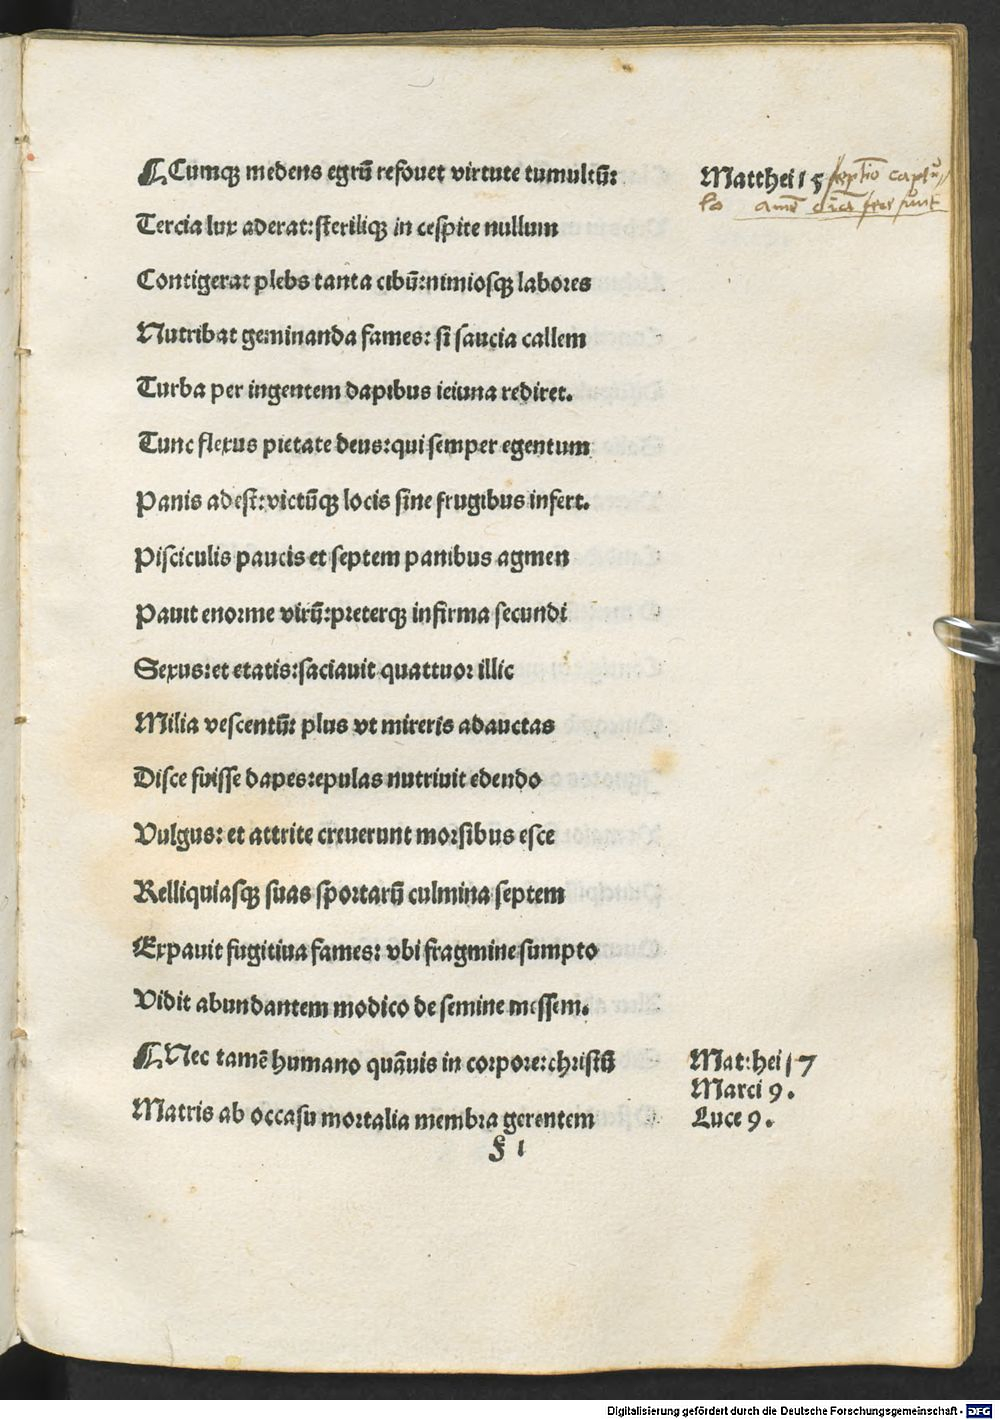 ¶Cumqꝫ medens egrū refouet virtute tumultū:
Tercia lux aderat: sterilıqꝫ in cespite nullum
Contigerat plebs tanta cibū: nimiosqꝫ labores
Nutribat geminanda fames: si saucia callem
Turba per ingentem dapibus ieiuna rediret.
Tunc flexus pietate deus: qui semper egentum
Panis adest: victūqꝫ locis sine frugibus infert.
Pisciculis paucis et septem panibus agmen
Pauit enorme virū: preterqꝫ infirma secundi
Sexus: et etatis: saciauit quattuor illic
Milia vescentū: plus vt mireris adauctas
Disce fuisse dapes: epulas nutriuit edendo
Vulgus: et attrite creuerunt morsibus esce
Relliquiasqꝫ suas sportarū culmina septem
Expauit fugitiua fames: vbi fragmine sumpto
Vidit abundantem modico de semine messem.
¶Nec tamē humano quāuis in corpore: christū
Matris ab occasu mortalia membra gerentem
f 1
Matthei 15
Matthei 17
Marci 9.
Luce 9.
Digitalisierung gefördert durch die Deutsche Forschungsgemeinschaft - DFG